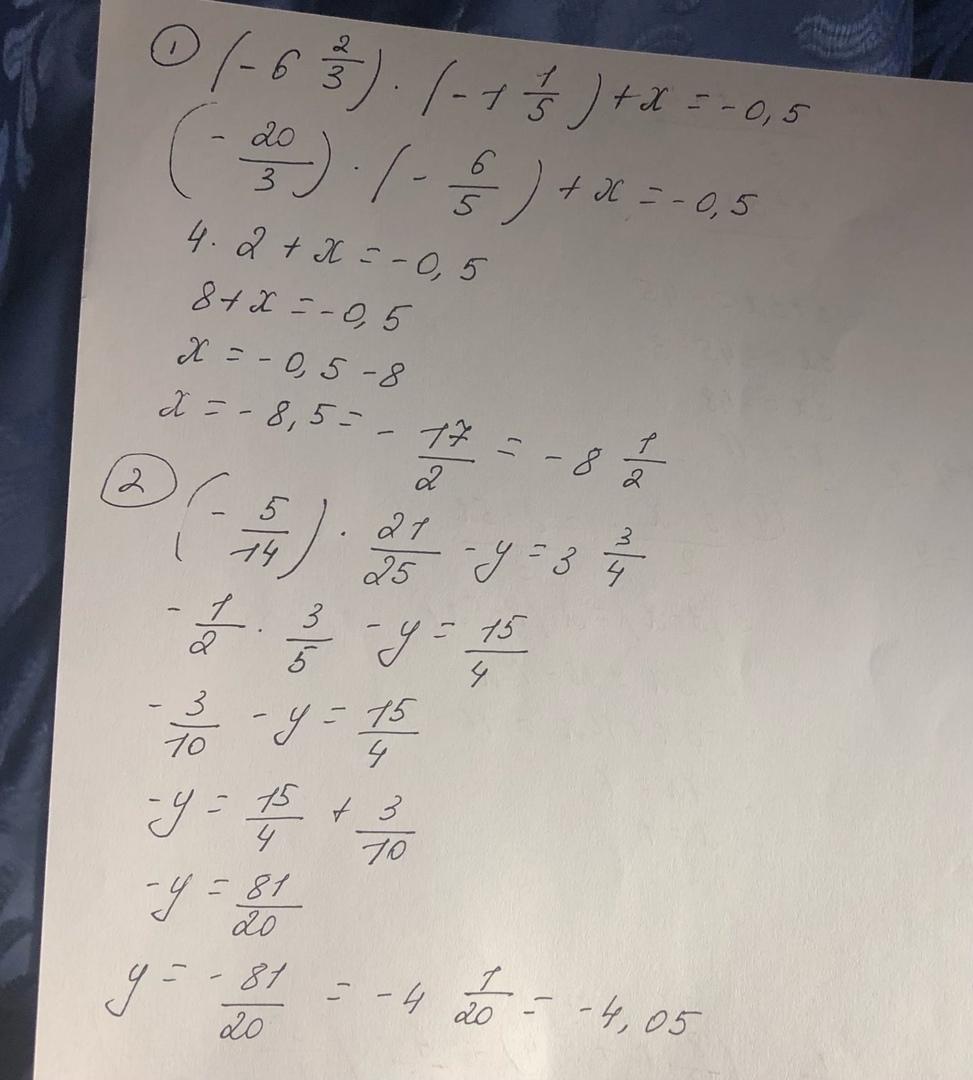 ① (-6 2/3) · (-1 1/5) + x = -0,5
(-20/3) · (-6/5) + x = -0,5
4 · 2 + x = -0,5
8 + x = -0,5
x = -0,5 - 8
x = -8,5 = -17/2 = -8 1/2
② (-5/14) · 21/25 - y = 3 3/4
-1/2 · 3/5 - y = 15/4
-3/10 - y = 15/4
-y = 15/4 + 3/10
-y = 81/20
y = -81/20 = -4 1/20 = -4,05